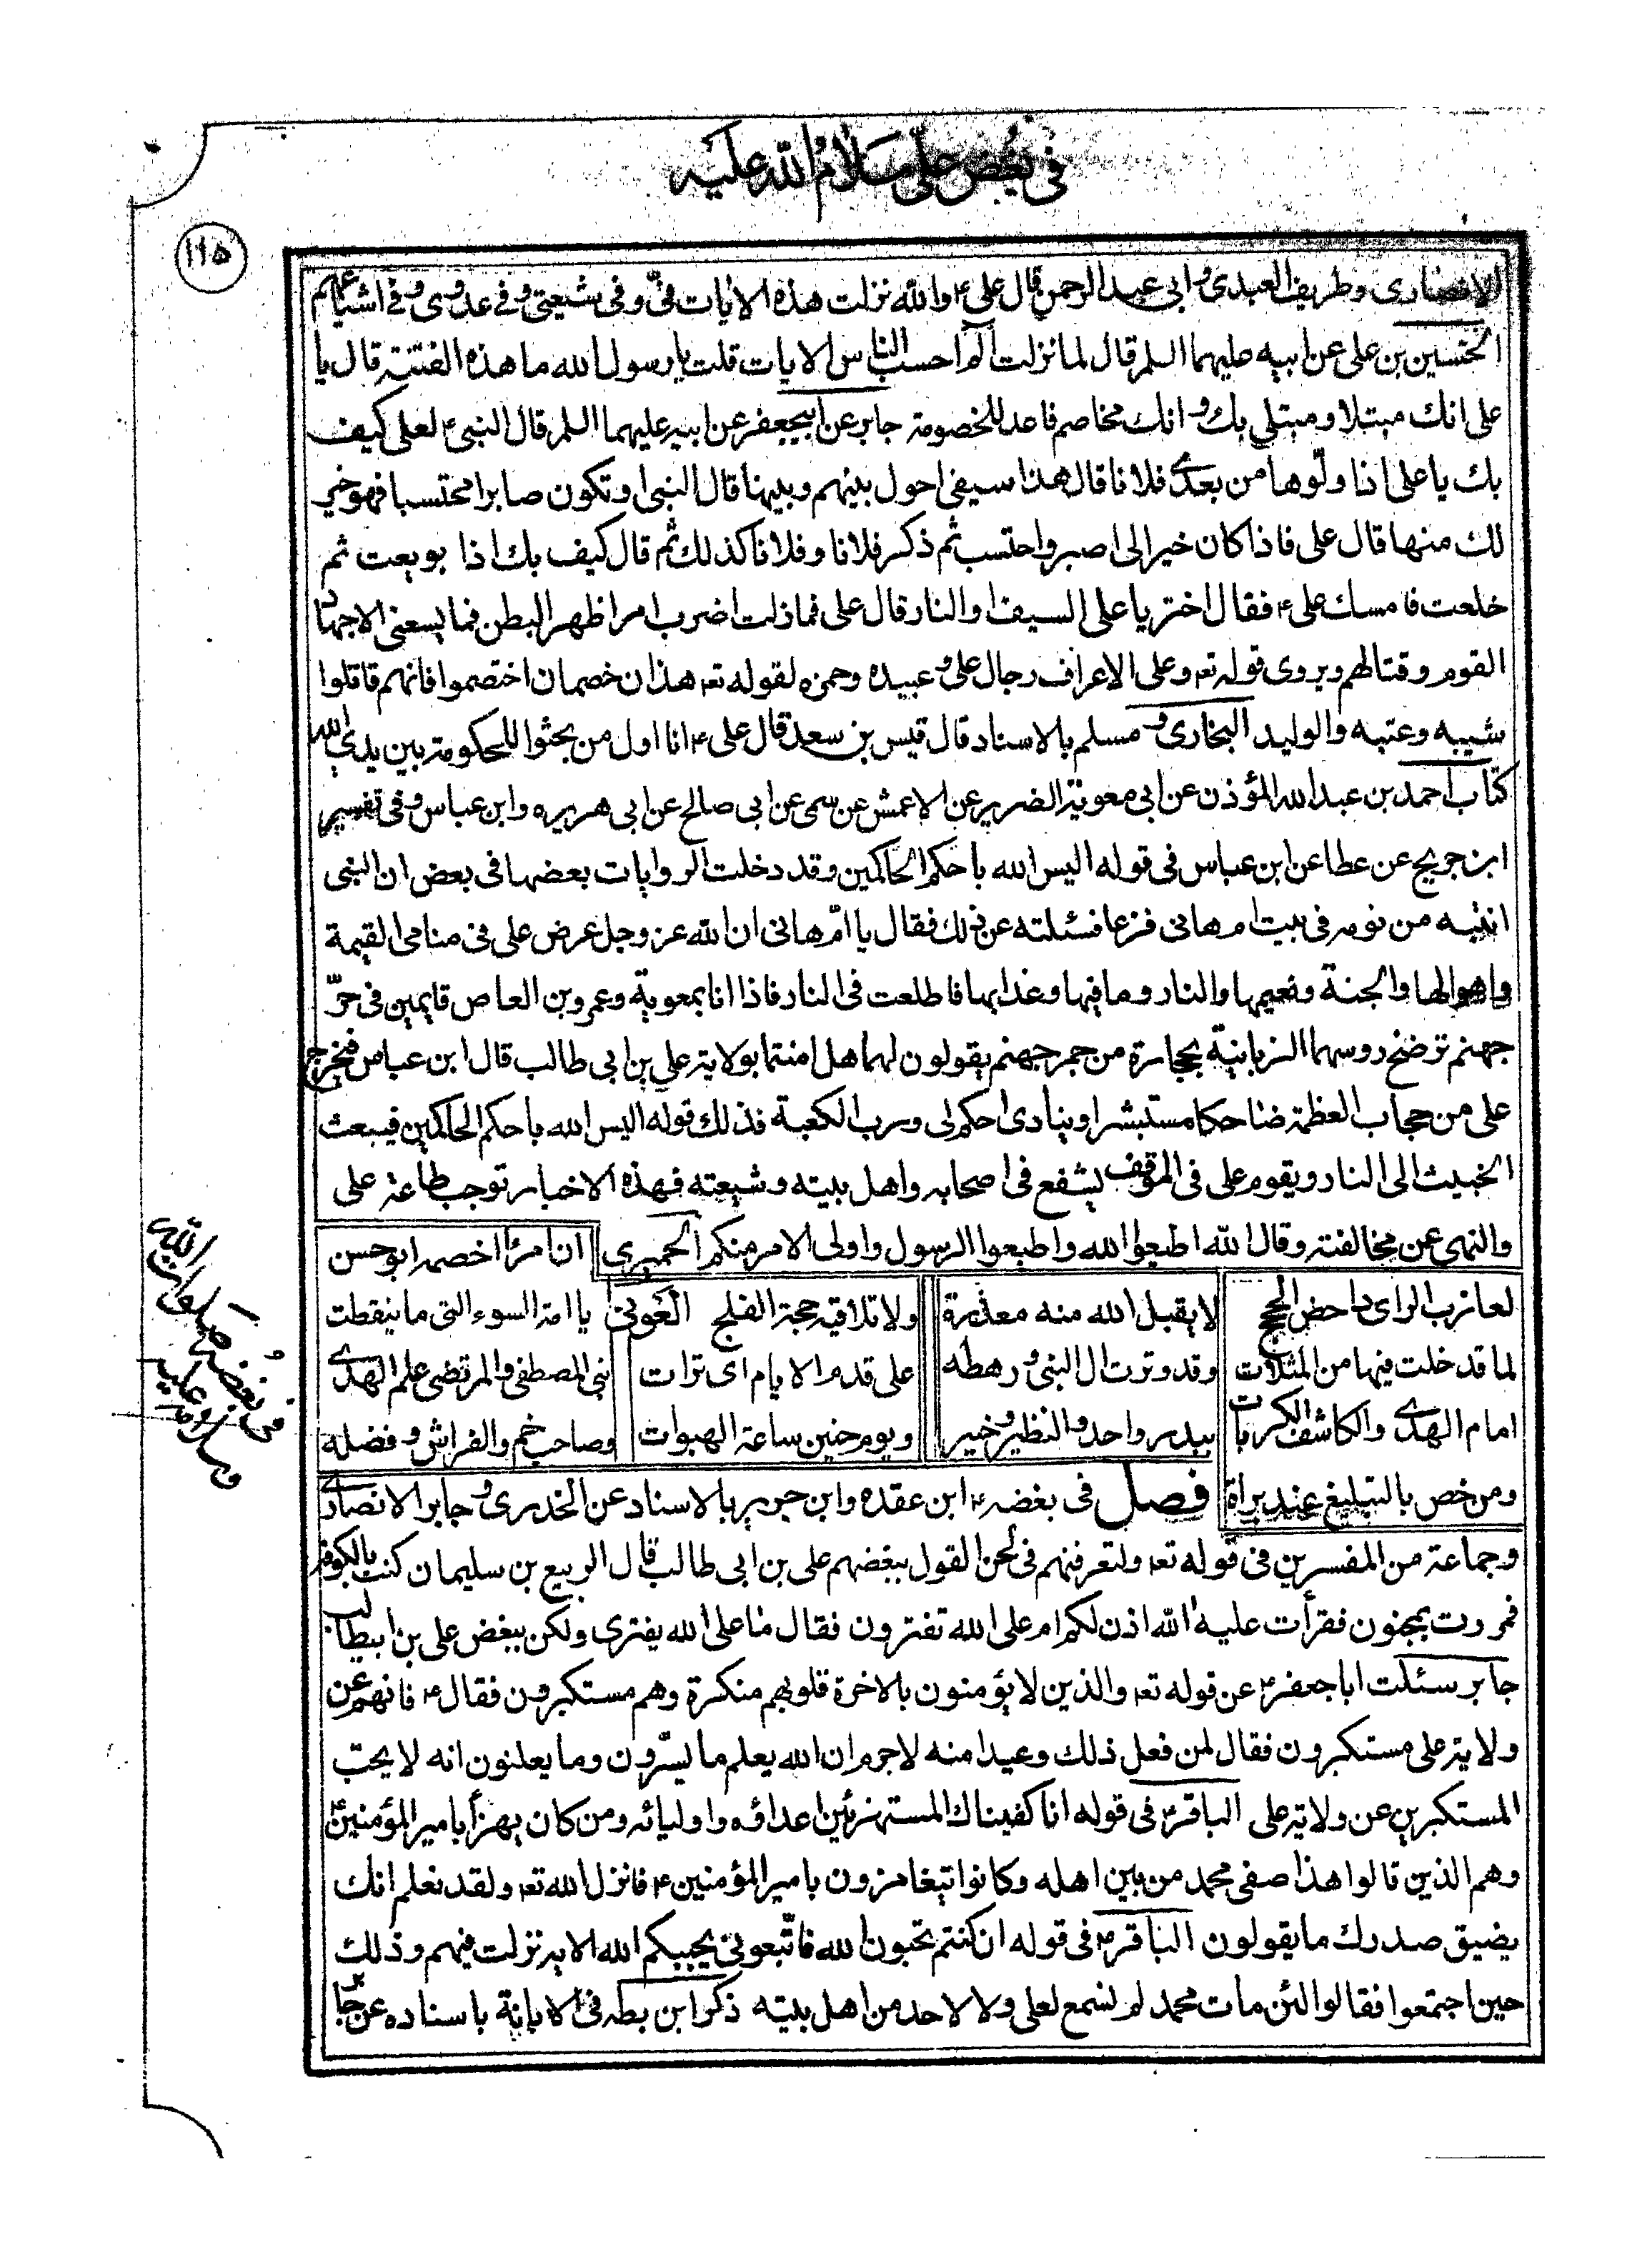 فى بغض على سلام الله عليه
١١٥
الانصارى وطريف العبدى وابى عبد الرحمن قال على ع والله نزلت هذه الايات فىّ وفى شيعتى وفى عدوى وفى اشياعهم
الحسين بن على عن ابيه عليهما السلم قال لما نزلت الم احسب الناس الايات قلت يا رسول الله ما هذه الفتنة قال يا
على انك مبتلا ومبتلى بك وانك مخاصم فاعد للخصومة جابر عن ابيجعفر عن ابيه عليهما السلم قال النبى ع لعلى كيف
بك يا على اذا ولّوها من بعدى فلانا قال هذا سيفى احول بينهم وبينها قال النبى او تكون صابرا محتسبا فهو خير
لك منها قال على فاذا كان خيرا لى اصبر واحتسب ثم ذكر فلانا وفلانا كذلك ثم قال كيف بك اذا بويعت ثم
خلعت فامسك على ع فقال اختر يا على السيف او النار قال على فما زلت اضرب امرا ظهر البطن فما يسعنى الا جهاد
القوم وقتالهم ويروى قوله تع وعلى الاعراف رجال على و عبيده وحمزه لقوله تع هذان خصمان اختصموا فانهم قاتلوا
شيبه وعتبه والوليد البخارى و مسلم بالاسناد قال قيس بن سعد قال على ع انا اول من يجثوا للحكومة بين يدى الله
كتاب احمد بن عبد الله المؤذن عن ابى معوية الضرير عن الاعمش عن سمى عن ابى صالح عن ابى هريره وابن عباس وفى تفسير
ابن جريج عن عطا عن ابن عباس فى قوله اليس الله باحكم الحاكمين وقد دخلت الروايات بعضها فى بعض ان النبى
انتبه من نومه فى بيت ام هانى فزعا فسئلته عن ذلك فقال يا امّ هانى ان الله عز وجل عرض على فى منامى القيمة
واهوالها والجنة ونعيمها والنار وما فيها وعذابها فاطلعت فى النار فاذا انا بمعوية وعمرو بن العاص قايمين فى حرّ
جهنم ترضخ روسهما الزبانية بحجارة من جمر جهنم يقولون لهما هل امنتما بولاية على بن ابى طالب قال ابن عباس فيخرج
على من حجاب العظمة ضاحكا مستبشرا وينادى احكم لى ورب الكعبة فذلك قوله اليس الله باحكم الحاكمين فيبعث
الخبيث الى النار ويقوم على فى الموقف يشفع فى اصحابه واهل بيته وشيعته فهذه الاخبار توجب طاعة على
والنهى عن مخالفته وقال الله اطيعوا الله واطيعوا الرسول واولى الامر منكم الحميرى ان امرءا خصمه ابو حسن
لعازب الراى داحض الحجج لا يقبل الله منه معذرة ولا تلاقيه حجة الفلج العونى يا امة السوء التى ما تيقظت
لما قد خلت فيها من المثلات وقد وترت ال النبى و رهطه على قدم الايام اى ترات نبى المصطفى والمرتضى علم الهدى
امام الهدى والكاشف الكربات ببدر واحد والنظير وخيبر ويوم حنين ساعة الهبوات وصاحب خم والفراش وفضله
ومن خص بالتبليغ عند براة فصل فى بغضه ع ابن عقده وابن جرير بالاسناد عن الخدرى و جابر الانصارى
وجماعة من المفسرين فى قوله تع ولتعرفنهم فى لحن القول ببغضهم على بن ابى طالب قال الربيع بن سليمان كنت بالكوفة
فمررت بمجنون فقرأت عليه الله اذن لكم ام على الله تفترون فقال ما على الله يفترى ولكن ببغض على بن ابيطالب
جابر سئلت ابا جعفر ع عن قوله تع والذين لا يؤمنون بالاخرة قلوبهم منكرة وهم مستكبرون فقال ع فانهم عن
ولاية على مستكبرون فقال لمن فعل ذلك وعيدا منه لا جرم ان الله يعلم ما يسرّون وما يعلنون انه لا يحبّ
المستكبرين عن ولاية على الباقر ع فى قوله انا كفيناك المستهزئين اعداؤه واوليائه ومن كان يهزأ بامير المؤمنين ع
وهم الذين قالوا هذا صفى محمد من بين اهله وكانوا يتغامزون بامير المؤمنين ع فانزل الله تع ولقد نعلم انك
يضيق صدرك ما يقولون الباقر ع فى قوله ان كنتم تحبون الله فاتّبعونى يحببكم الله الاية نزلت فيهم وذلك
حين اجتمعوا فقالوا لئن مات محمد لم نسمع لعلى ولا لاحد من اهل بيته ذكر ابن بطه فى الابانة باسناده عن جا
فى بغض صلوات الله
وسلامه عليه